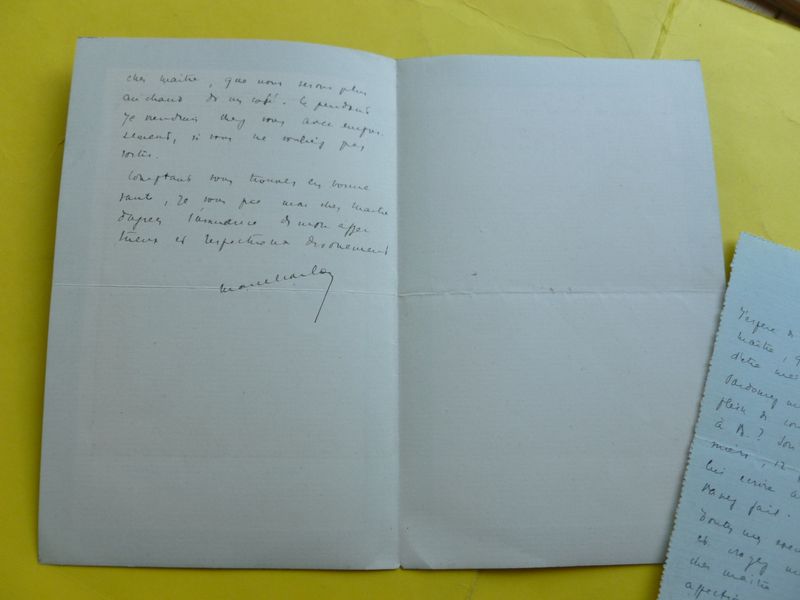 cher maître, que nous serons plus
au chaud de vos café. Cependant
je viendrais chez vous avec empres
sement, si vous ne vouliez pas
sortir.
Comptant vous trouver en bonne
santé, je vous prie mon cher Maître
d'agréer l'assurance de mon affec
tueux et respectueux dévouement
J'espère
maître, q
d'être
Pardonnez
plein de
à B.? Son
mais,
lui écrire à
Toutes mes
et croyez
cher maître